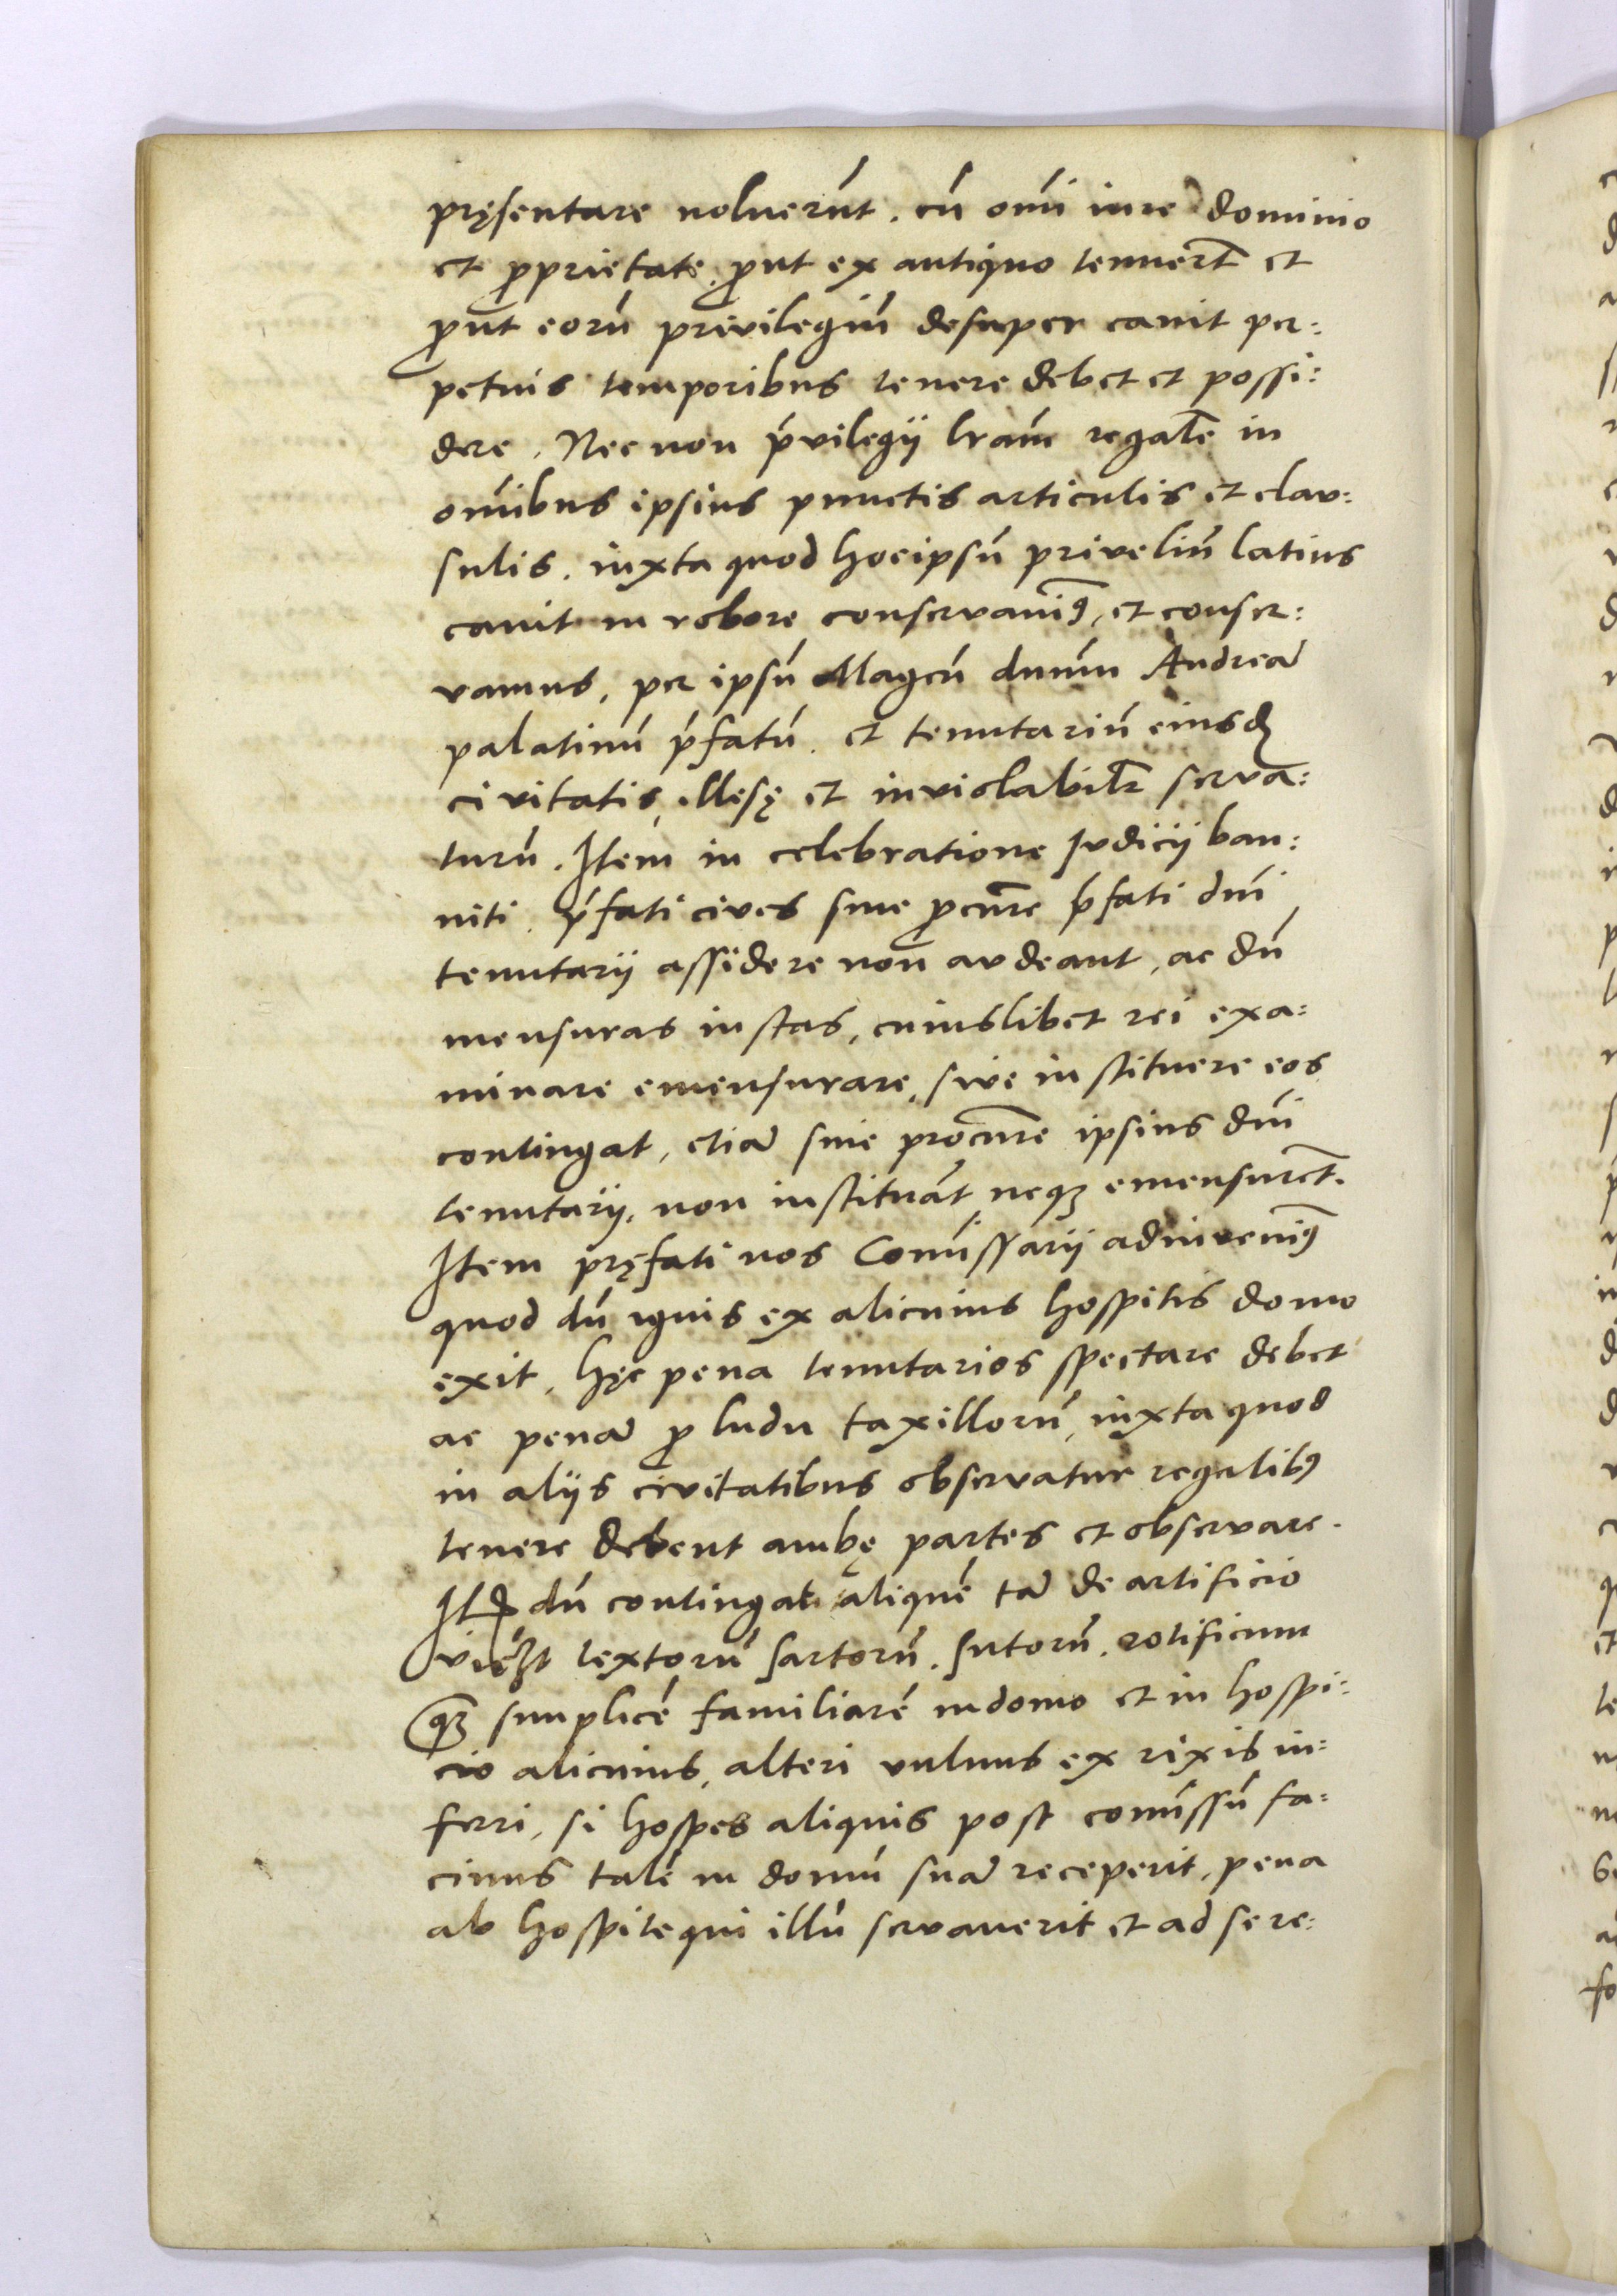 pręsentare noluerũt. cũ om̃i iure dominio
et ꝓprietate, ꝓut ex antiquo tenuert̃ et
ꝓut eorũ privilegiũ desuper canit per:
petuis temporibus tenere debet et possi:
dere. Nec non p̃vilegij l̃ram regalẽ in
om̃ibus ipsius punctis articulis et clau:
sulis. iuxta quod hocipsũ priveliũ latius
canit in robore conservavim9, et conser:
vamus, per ipsũ Magcũ dnũm Andreã
palatinũ p̃fatũ. et tenutariũ eiusdꝫ
civitatis, illesę et inviolabilr̃ serva:
turũ. Item in celebratione Iudicij ban:
niti. p̃fati cives sine ꝓcur̃e p̃fati dñi
tenutarij assidere non audeant, ac dũ
mensuras iustas, cuiuslibet rei exa:
minare emensurare, sive instituere eos
contingat, etiã sine procur̃e ipsius dñi
tenutarij, non instituãt neqꝫ emensurẽt.
Item pręfati nos Com̃issarij adinvenim9
quod dũ ignis ex alicuius hospitis domo
exit, hęc pena tenutarios spectare debet
ac penã ꝓ ludu taxillorũ, iuxta quod
in alijs civitatibus observatur regalib9
tenere debent ambę partes et observare.
Itꝫ dũ contingat aliquẽ tã de artificio
vicꝫt textorũ sartorũ. sutorũ. rotificum
qꝫ simplicẽ familiarẽ in domo et in hospi:
cio alicuius, alteri vulnus ex rixis in:
ferri, si hospes aliquis post com̃issũ fa:
cinus talẽ in domũ suã receperit, pena
ab hospite qui illũ servaverit et ad se re: